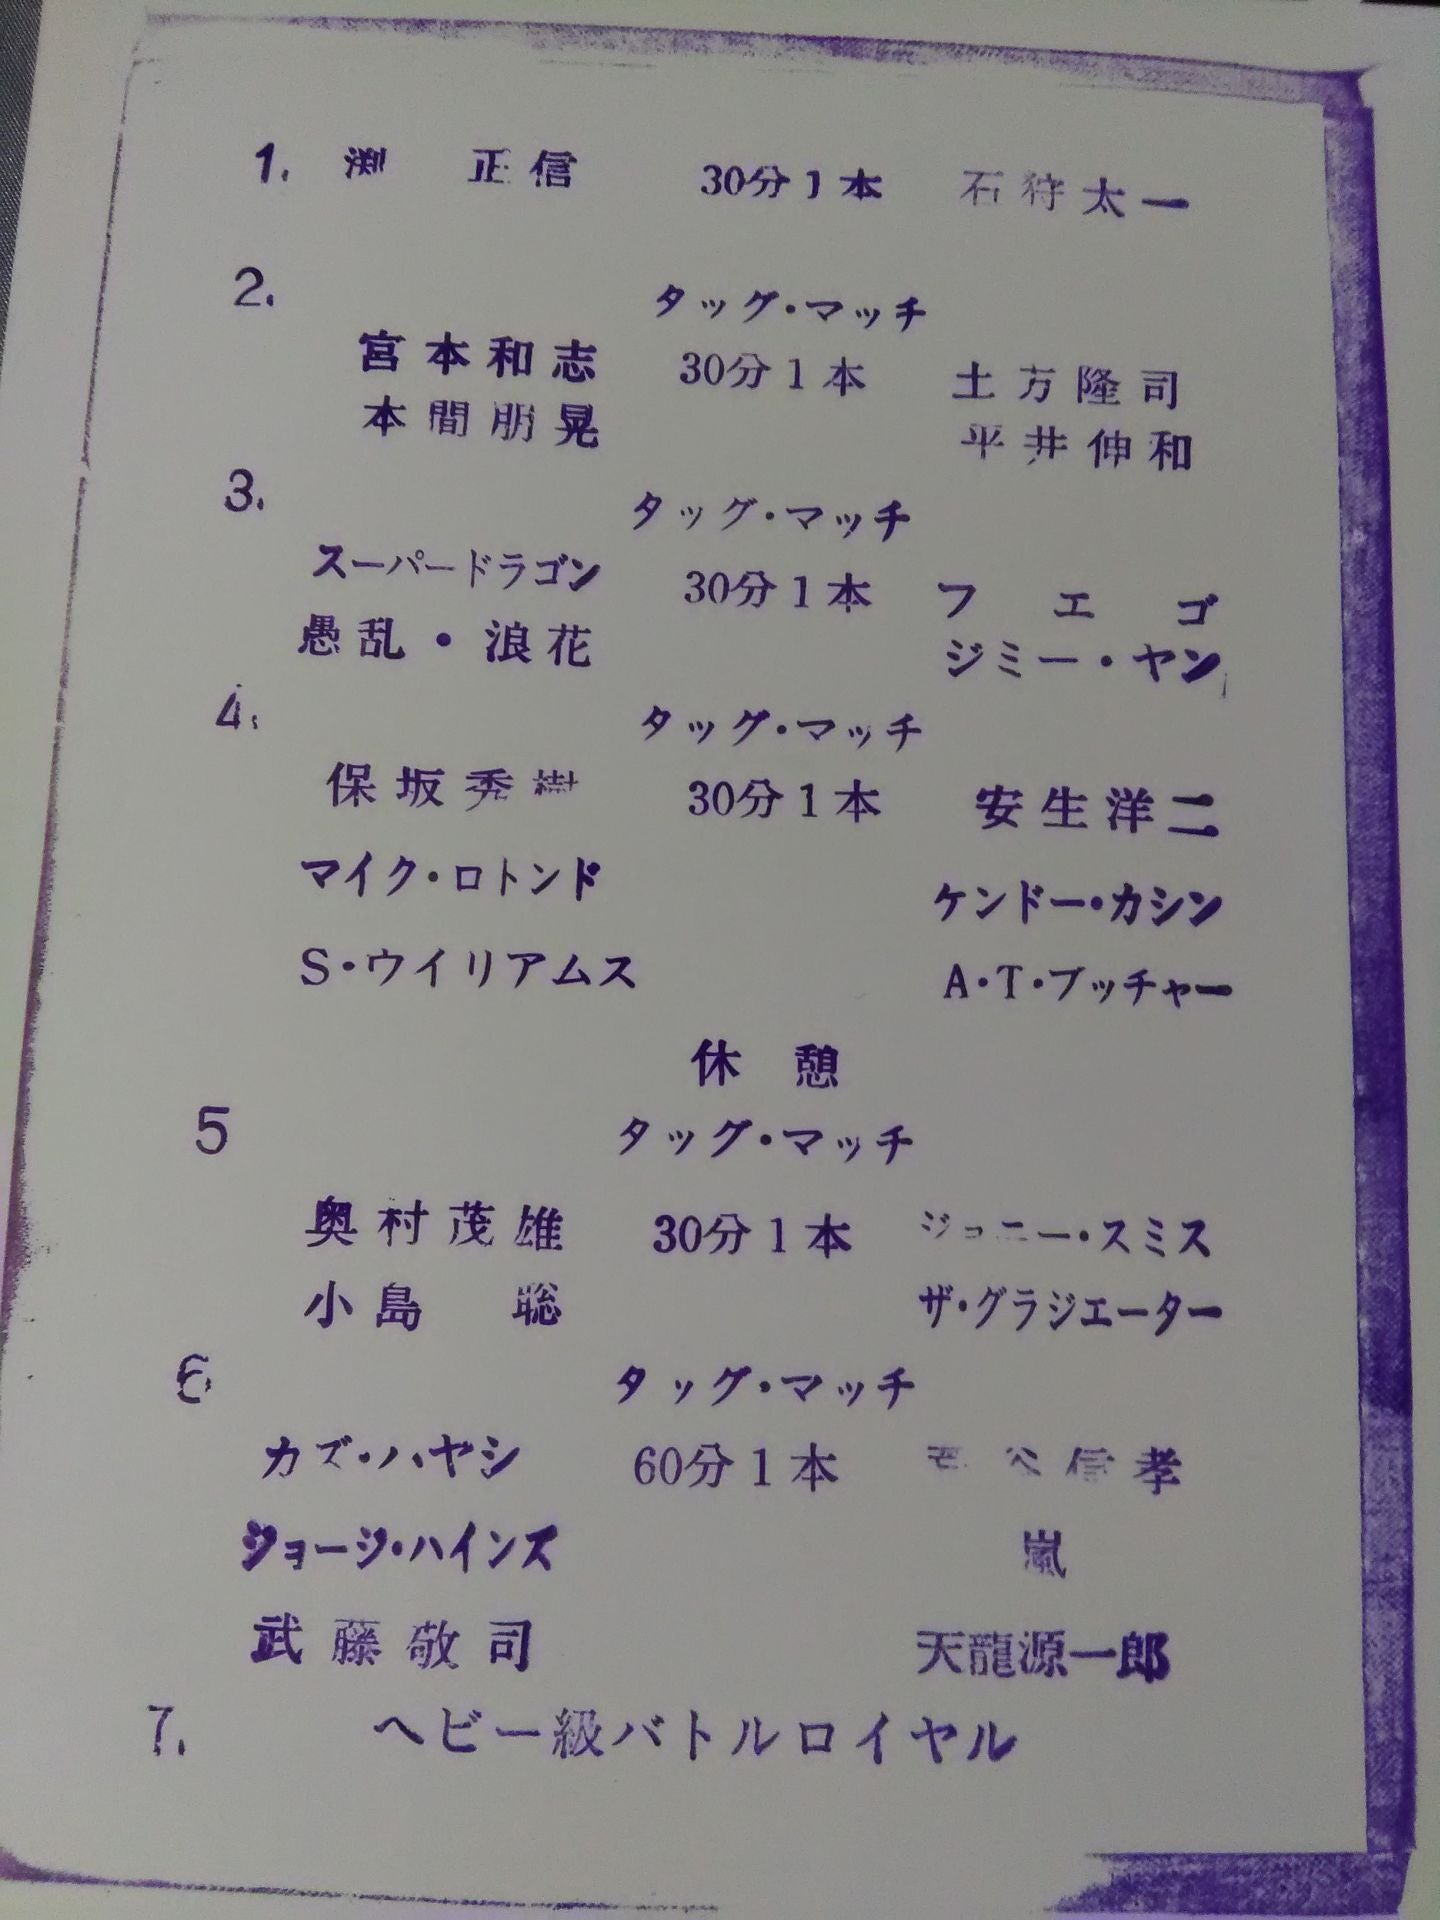 1. 渕 正信 30分1本 石狩太一
2.
タッグ・マッチ
宮本和志 30分1本 土方隆司
本間朋晃 平井伸和
3.
タッグ・マッチ
スーパードラゴン 30分1本 フエゴ
愚乱・浪花 ジミー・ヤン
4.
タッグ・マッチ
保坂秀樹 30分1本 安生洋二
マイク・ロトンド ケンドー・カシン
S・ウイリアムス A・T・ブッチャー
休憩
5
タッグ・マッチ
奥村茂雄 30分1本 ジョニー・スミス
小島 聡 ザ・グラジエーター
6
タッグ・マッチ
カズ・ハヤシ 60分1本 荒谷信孝
ジョージ・ハインズ 嵐
武藤敬司 天龍源一郎
7. ヘビー級バトルロイヤル